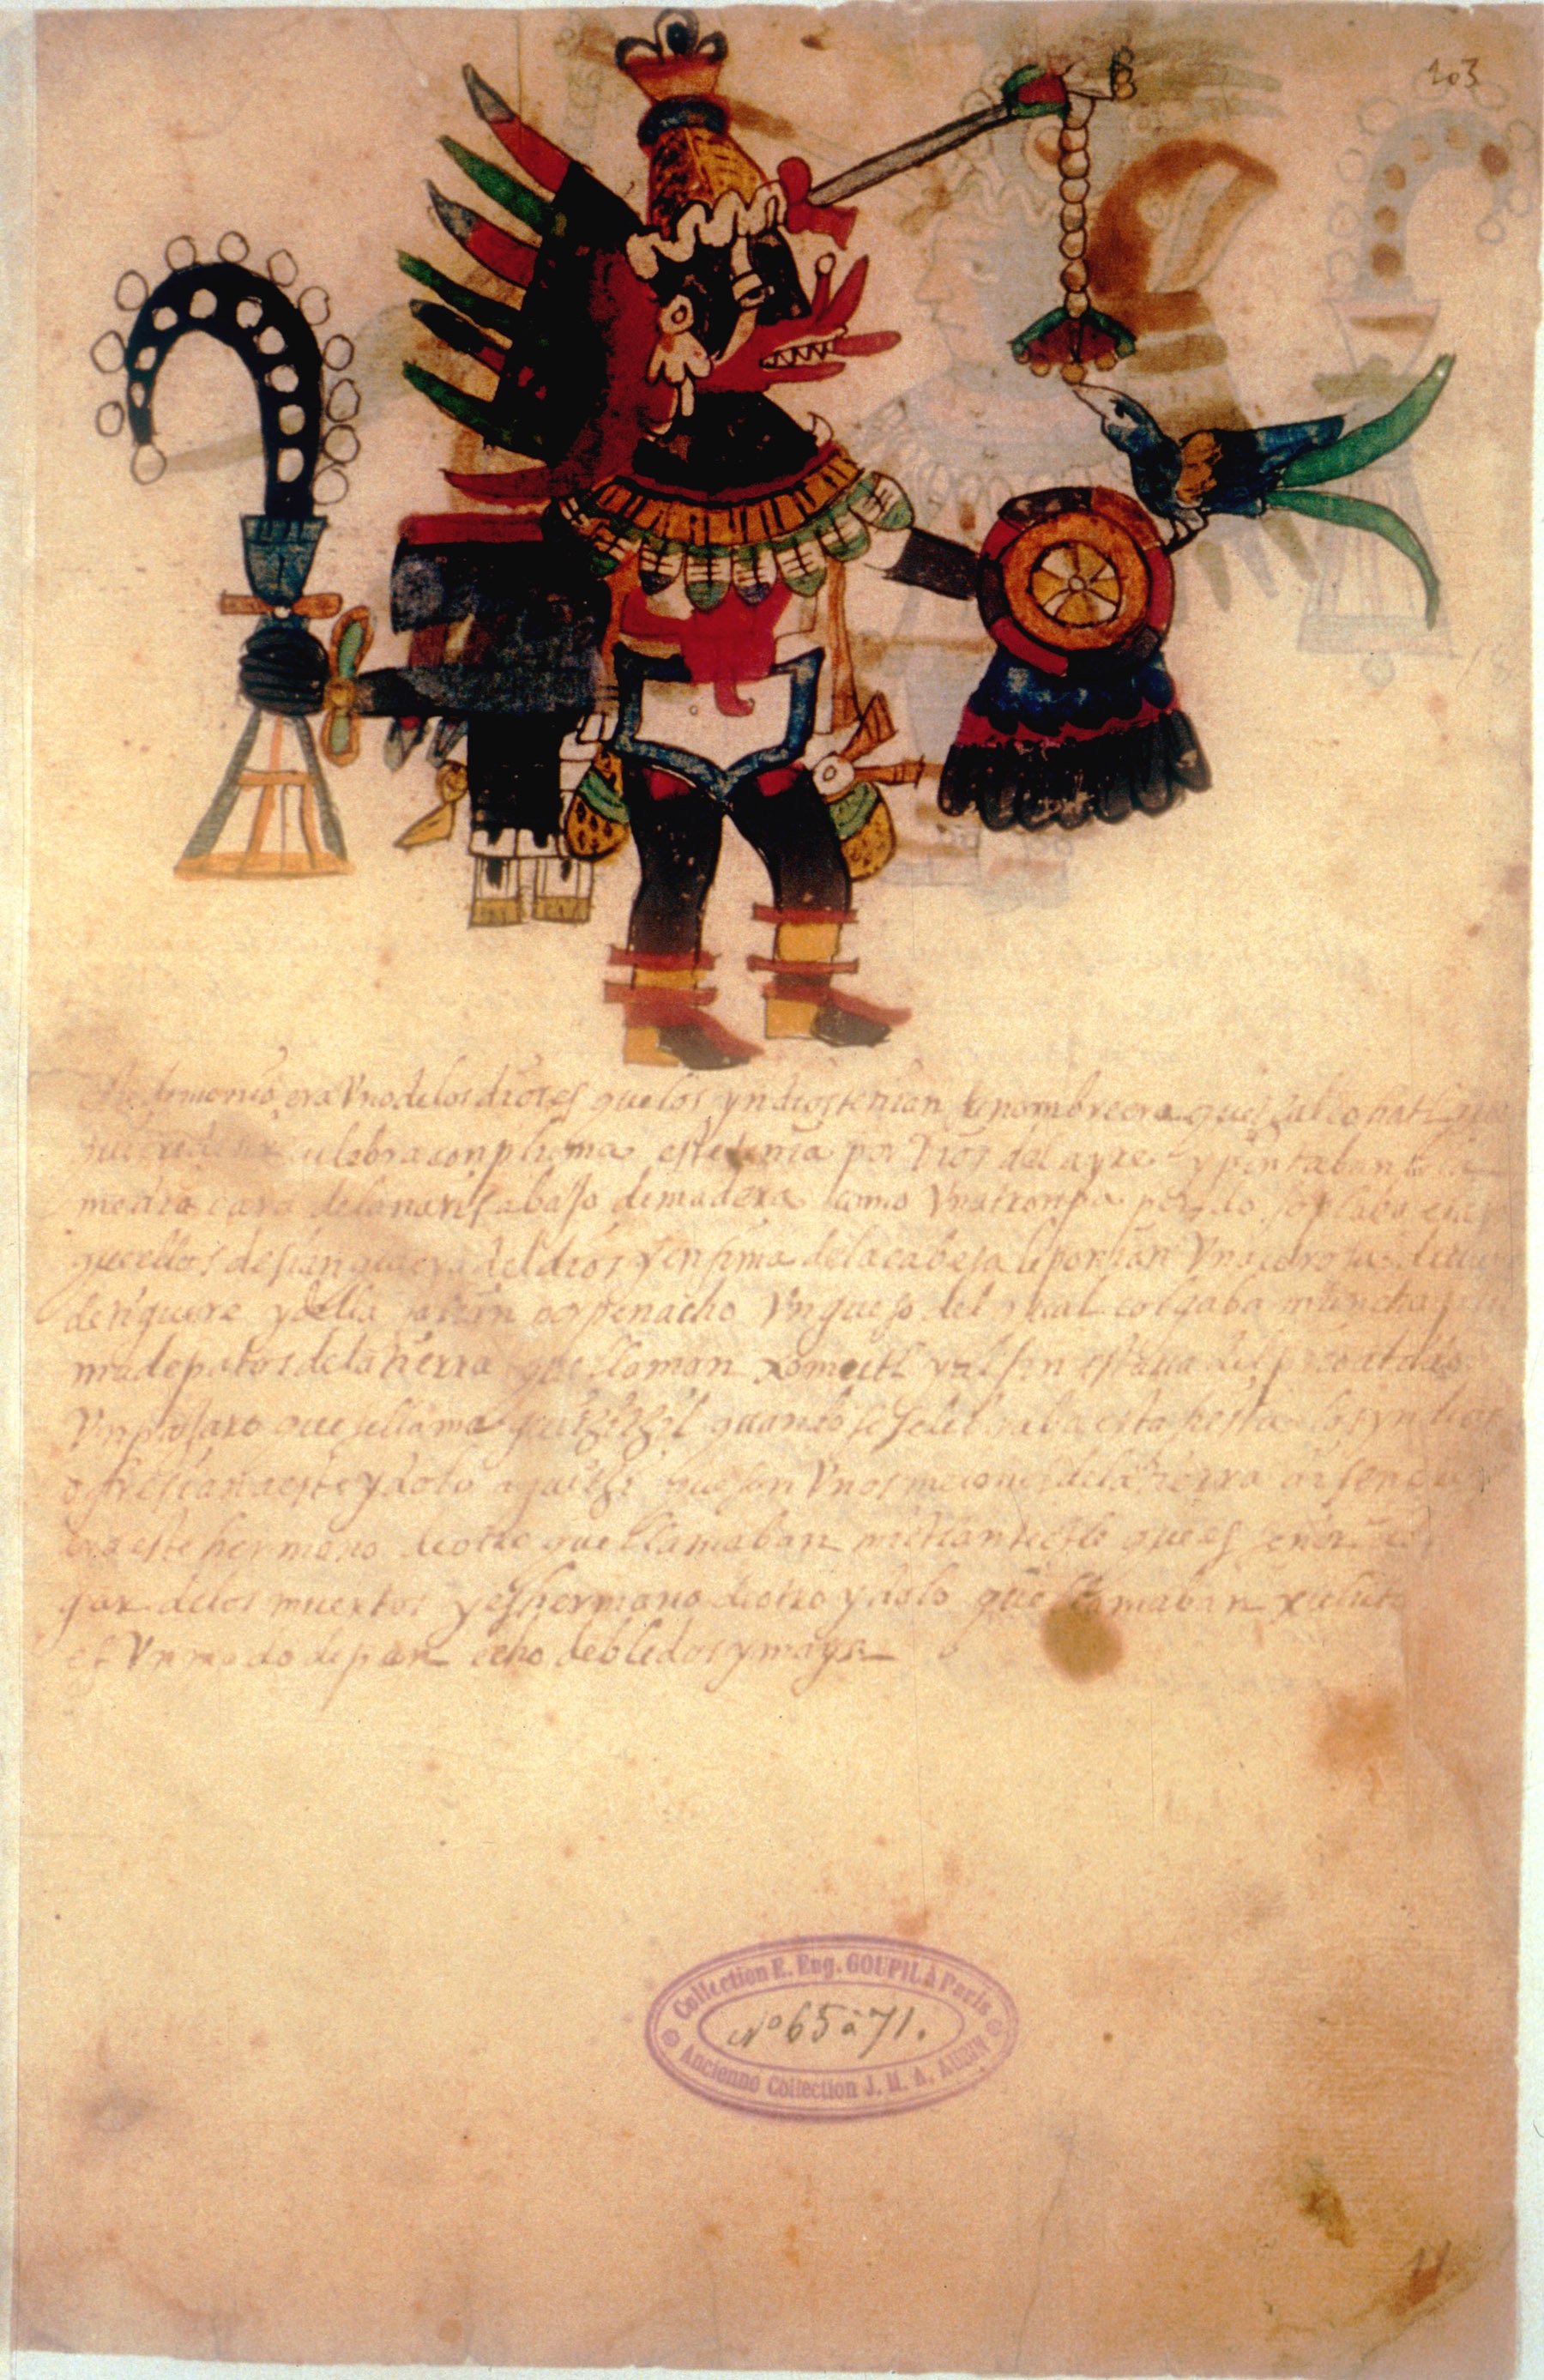 203
este demonio era Vno delos dioses quelos yndios tenian su nombre era quetzalcoatl
culebra con pluma estetenia por Dios del ayre y pintaban le la
media cara dela nariz abajo demadera como Vna tronpa por do soplaba
quellos desian que era del dios y ensima dela cabesa le ponian Vna
de tiguere y della salia por penacho Vn gueso del qual colgaba muncha
ma de patos dela tierra que llaman xomotl y al fin estaua del
Vn pajaro que sellama quando se selebraba esta fiesta los yndios
ofresian a este ydolo que son Vnos melones dela tierra
era este hermano de otro que llamaban que es señor
gar delos muertos y es hermano de otro ydolo que llamaban
es Vn modo de pan echo de bledos y mayz
Collection E. Eug. GOUPIL à Paris
No 65 à 71.
Ancienne Collection J. M. A. AUBIN